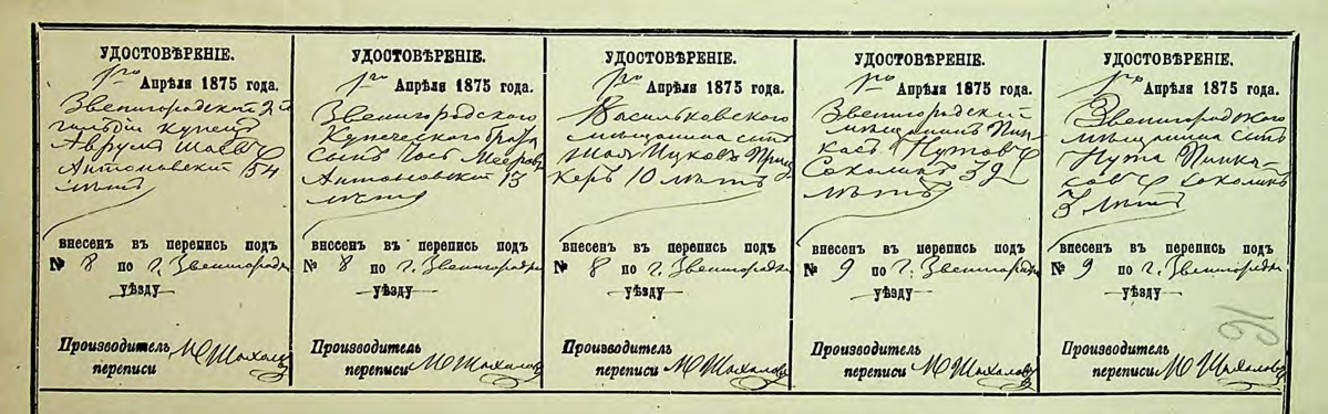 УДОСТОВѢРЕНІЕ.
1го Апрѣля 1875 года.
Звенигородскій 2й
гильдіи купецъ
Аврумъ
Антоновскій 54
лѣтъ
внесенъ въ перепись подъ
№ 8 по г. Звенигородкѣ
уѣзду
Производитель
переписи
УДОСТОВѢРЕНІЕ.
1го Апрѣля 1875 года.
Звенигородского
Купеческого
сынъ Іось Мееровъ
Антоновскій 13
лѣтъ
внесенъ въ перепись подъ
№ 8 по г. Звенигородкѣ
уѣзду
Производитель
переписи
УДОСТОВѢРЕНІЕ.
1го Апрѣля 1875 года.
Васильковского
мѣщанина сынъ
Ицковъ Приц-
керъ 10 лѣтъ
внесенъ въ перепись подъ
№ 8 по г. Звенигородкѣ
уѣзду
Производитель
переписи
УДОСТОВѢРЕНІЕ.
1го Апрѣля 1875 года.
Звенигородскій
мѣщанинъ Пин-
касъ Нутовъ
Соколинъ 32
лѣтъ
внесенъ въ перепись подъ
№ 9 по г. Звенигородкѣ
уѣзду
Производитель
переписи
УДОСТОВѢРЕНІЕ.
1го Апрѣля 1875 года.
Звенигородского
мѣщанина сынъ
Нута Пинка-
совъ Соколинъ
3 лѣтъ
внесенъ въ перепись подъ
№ 9 по г. Звенигородкѣ
уѣзду
Производитель
переписи